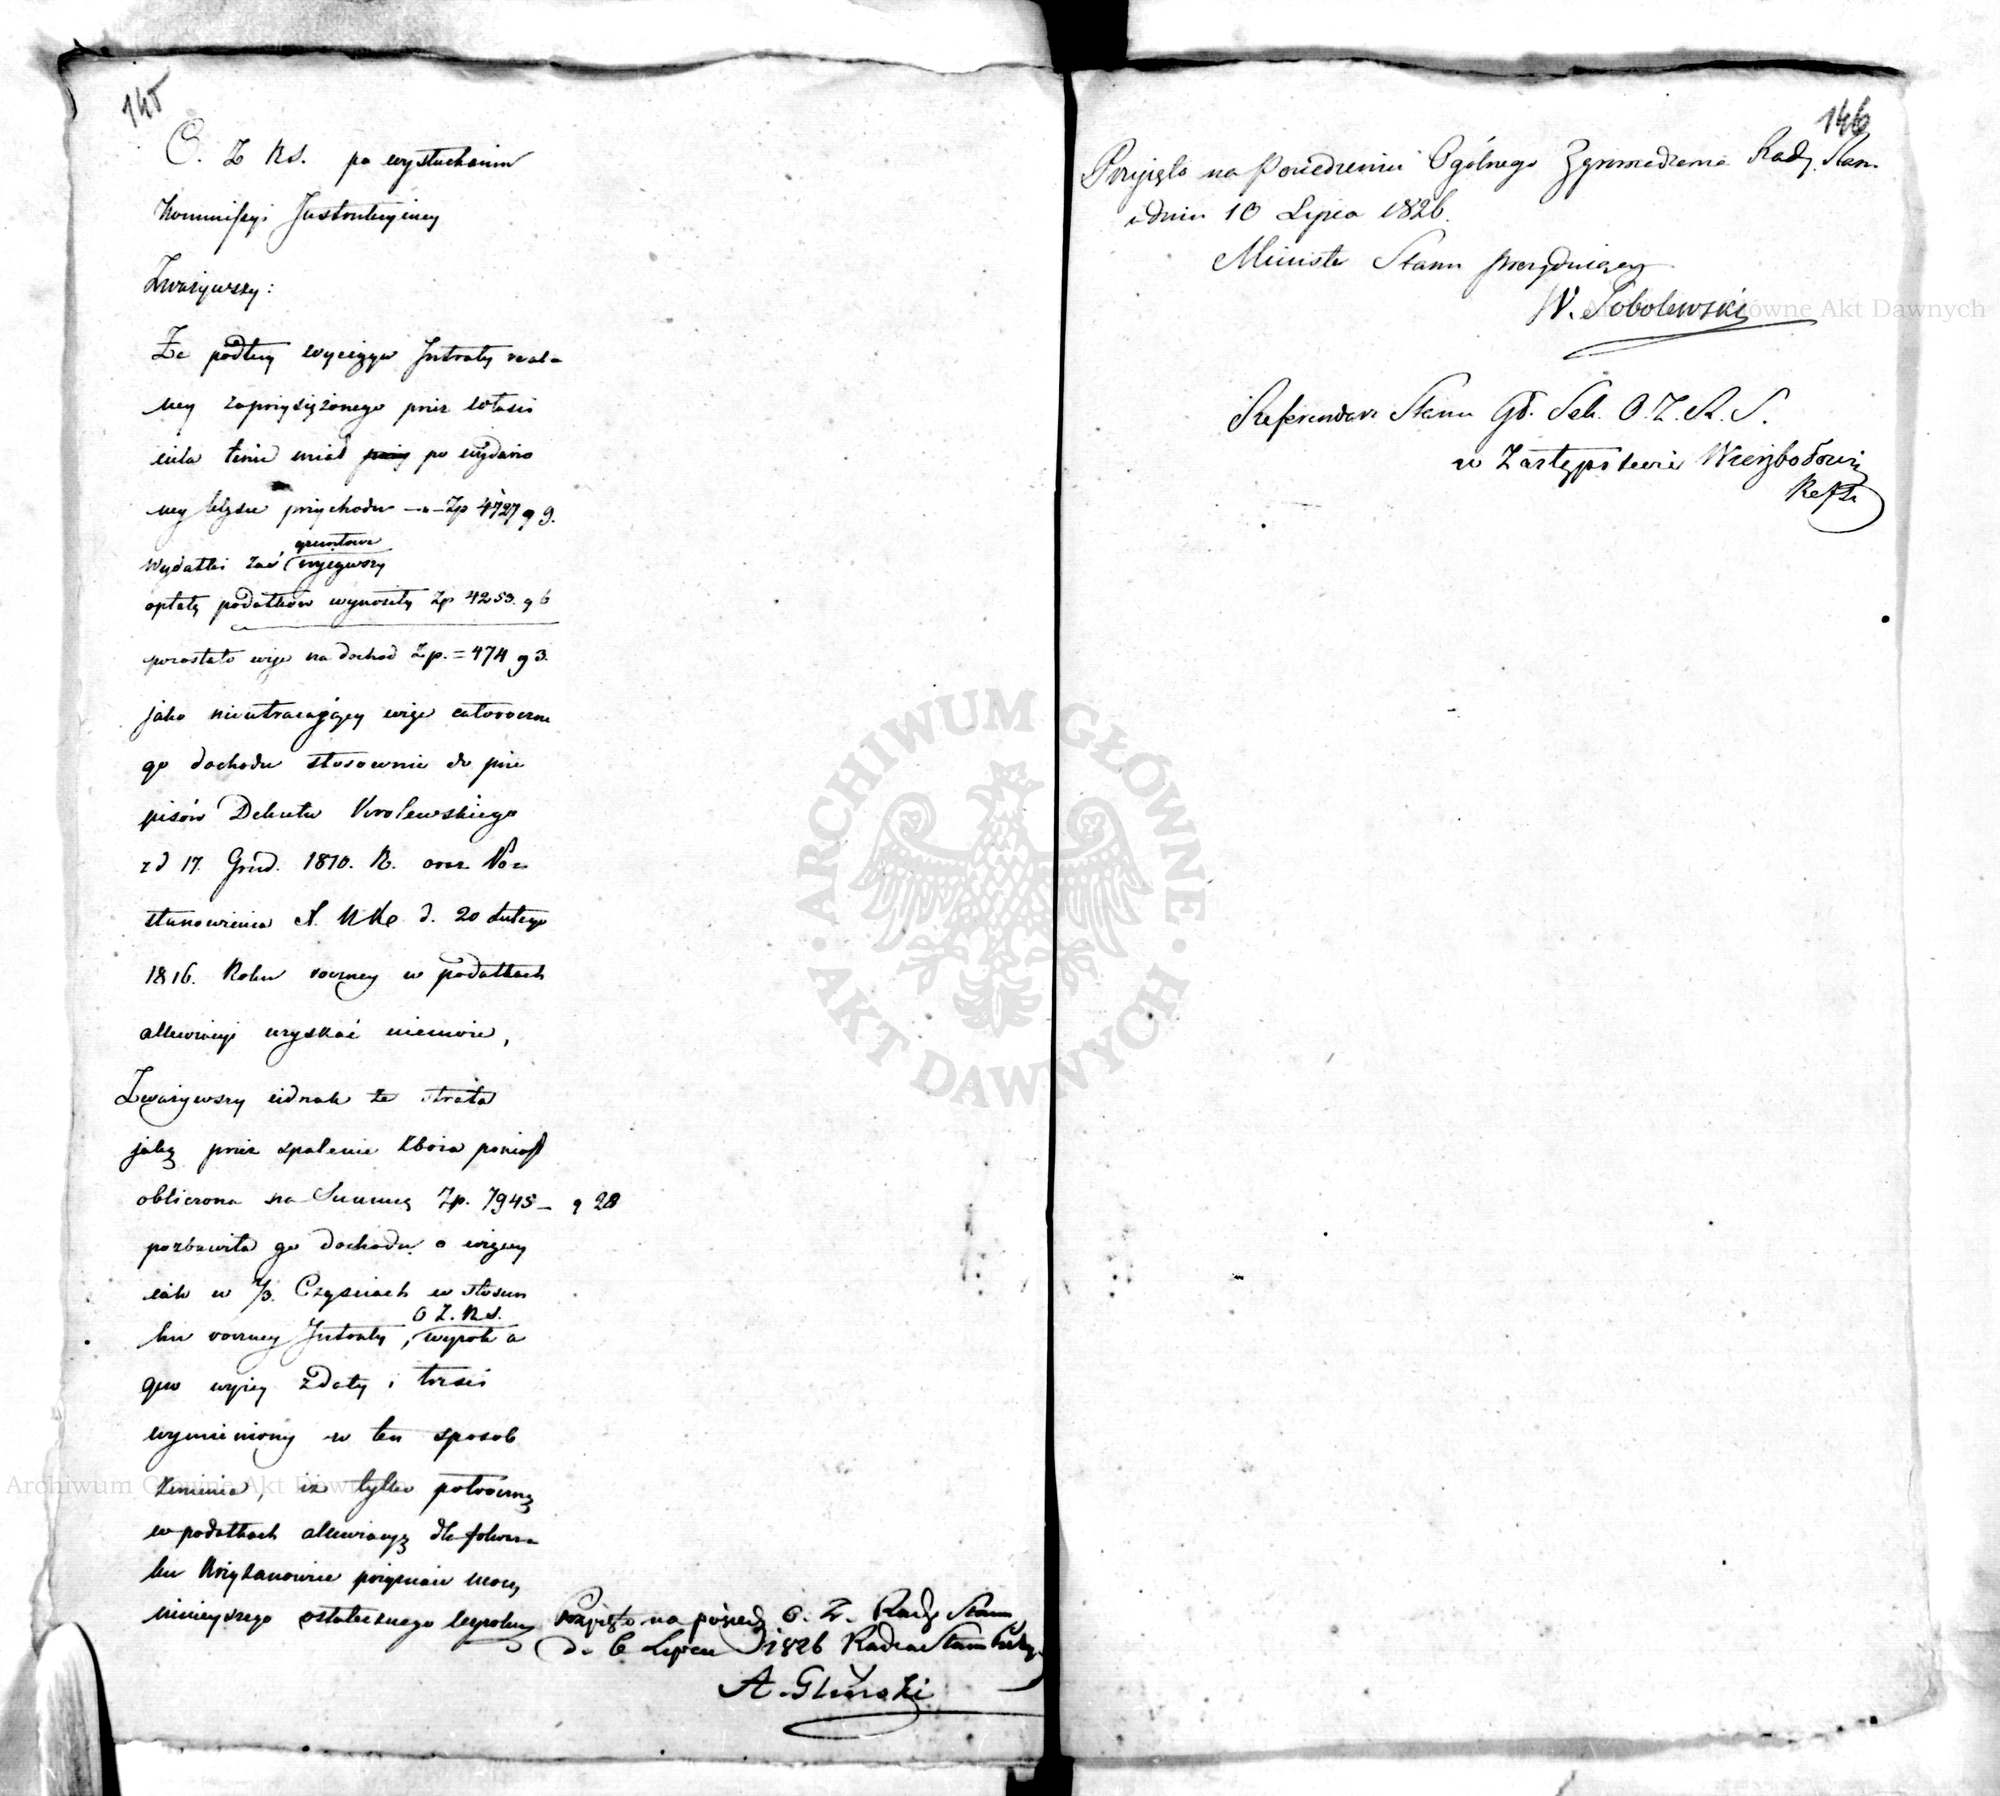 145
O. Z. R. S. po wysłuchaniu
Kommissyi Instrukcyiney
Zważywszy:
Że podług wyciągu Intraty real-
ney zaprzysiężonego przez właści
ciela tenże miał po wydano
ney klęsce przychodu Zp 4727 g 9.
gruntowe
wydatki zaś wyiąwszy
opłatę podatków wynosiły Zp 4253. g 6
pozostało więc na dochod Zp. = 474 g 3.
jako nieutracaiący więc całoroczne
go dochodu stosownie do prze
pisów Dekretu Krolewskiego
z d 17. Grud. 1810. R. oraz Po-
stanowienia d. 20 Lutego
1816. Roku roczney w podatkach
allewiacyi uzyskać niemoże,
Zważywszy iednak że strata
jaką przez spalenie zboża poniósł
obliczona na Summę Zp. 7945 - g 28
pozbawiła go dochodu o więcey
iak w 1/3. Częściach w stosun
O. Z. R. S.
ku roczney Intraty, wyrok a
quo wyżey z daty i treści
wymieniony w ten sposób
zmienia, iż tylko półroczną
w podatkach allewiacyą dla folwar
ku przyznaie mocą
ninieyszego ostatecznego wyroku
Przyięto na posiedz O. Z. Rady Stanu
d. 6 Lipca 1826 Radca Stanu
A. Gliński
146
Przyięto na Posiedzeniu Ogólnego Zgromadzenia Rady Stan.
w dniu 10 Lipca 1826.
Minister Stanu prezyduiący
W. Sobolewski
Referendarz Stanu Gł. Sek. O. Z. R. S.
w Zastępstwie Wierzbołowicz
Ref St
ARCHIWUM GŁÓWNE · AKT DAWNYCH ·
Archiwum Główne Akt Dawnych
Archiwum Główne Akt Dawnych